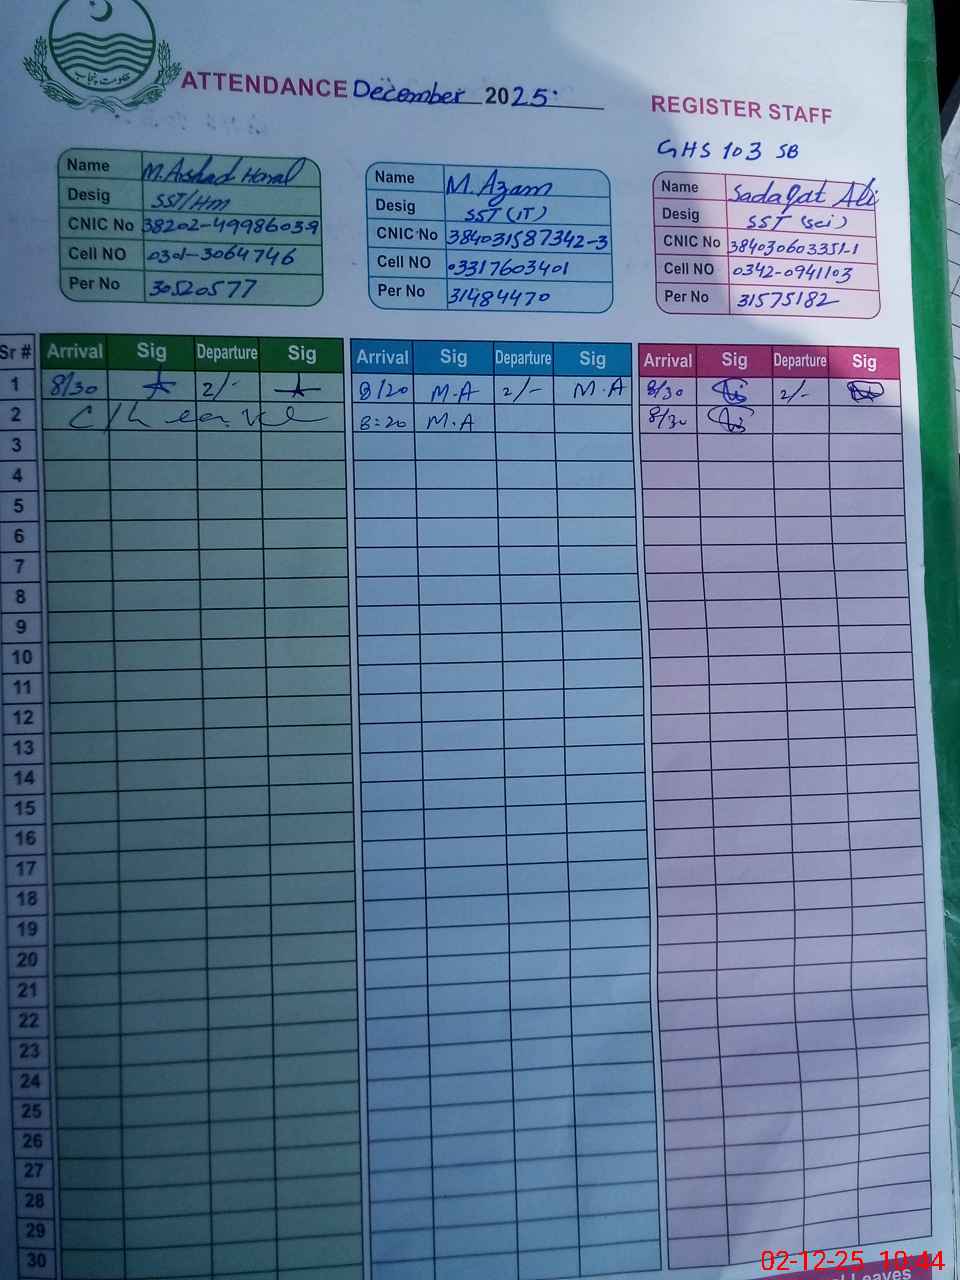 حکومت پنجاب
ATTENDANCE December 2025
REGISTER STAFF
GHS 103 SB
Name M. Arshad
Desig SST/HM
CNIC No 38202-49986039
Cell NO 0301-3064746
Per No 30520577
Name M. Azam
Desig SST (IT)
CNIC No 384031587342-3
Cell NO 03317603401
Per No 31484470
Name Sadaqat Ali
Desig SST (sci)
CNIC No 384030603351-1
Cell NO 0342-0941103
Per No 31575182
Sr # Arrival Sig Departure Sig Arrival Sig Departure Sig Arrival Sig Departure Sig
1 8/30 2/- 8/20 M.A 2/- M.A 8/30 2/-
2 C/Leave 8:20 M.A 8/30
3
4
5
6
7
8
9
10
11
12
13
14
15
16
17
18
19
20
21
22
23
24
25
26
27
28
29
30
Leaves
02-12-25 10:44